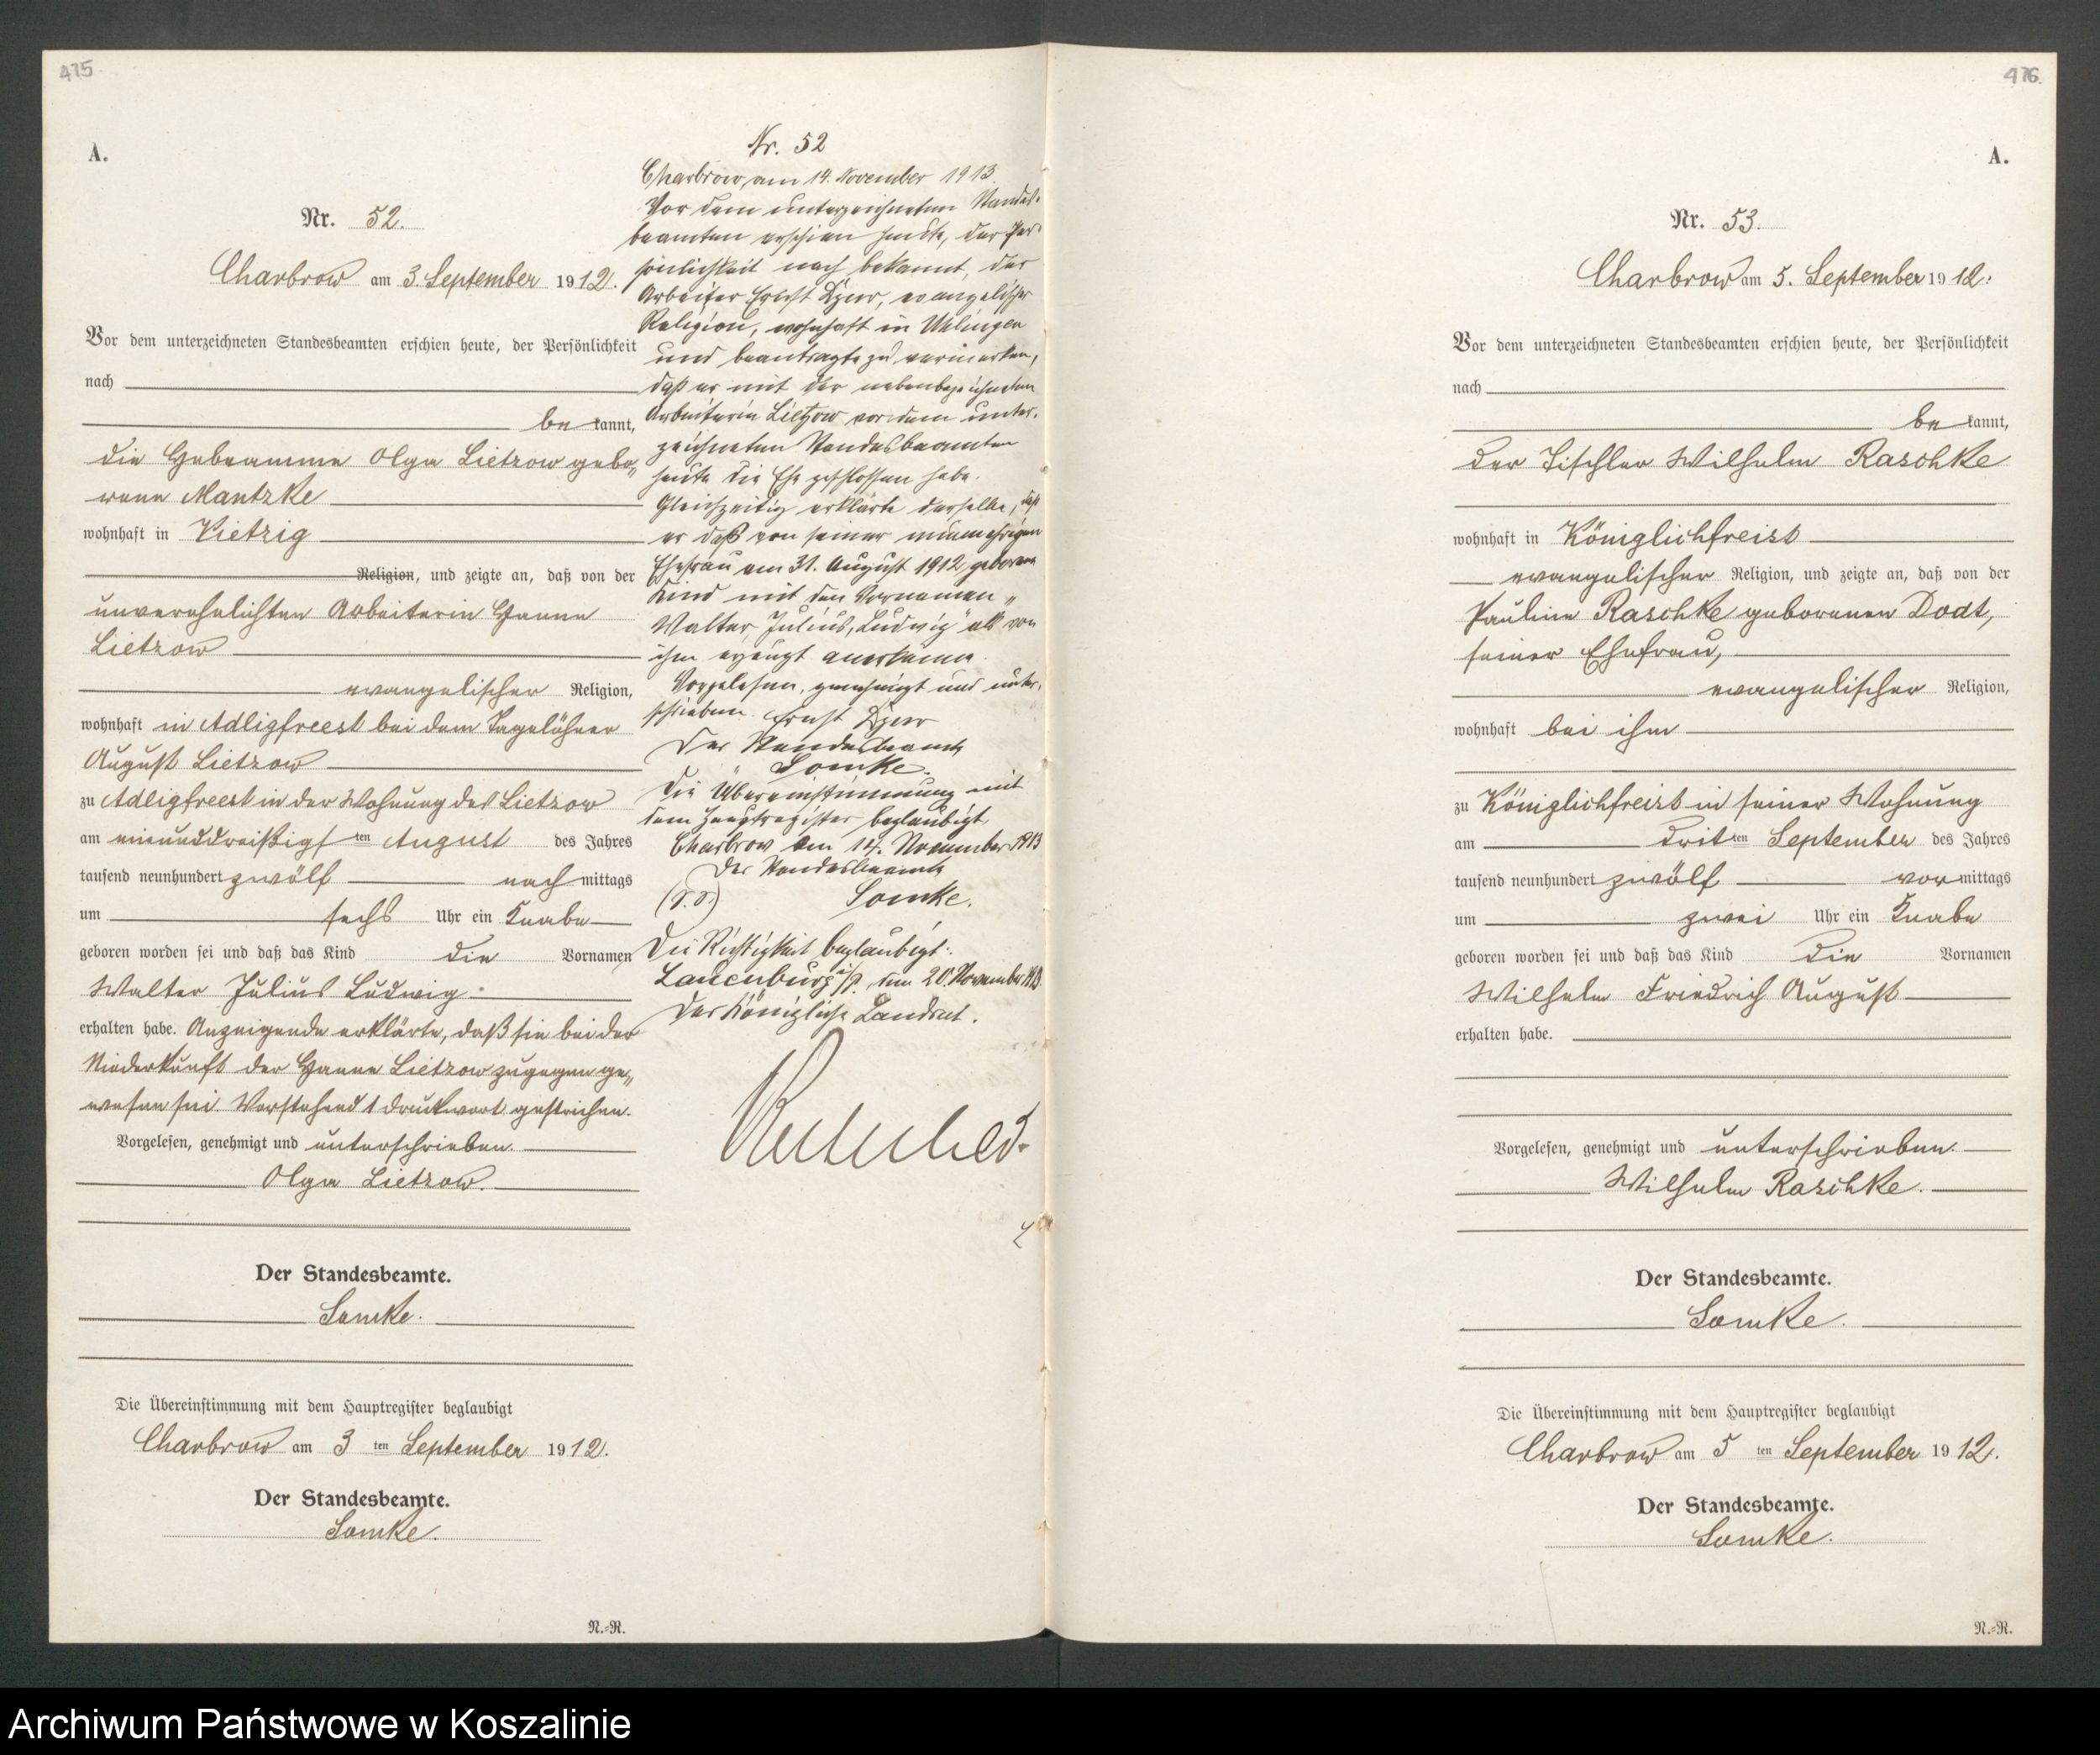 475
A.
Nr. 52.
Charbrow am 3. September 1912.
Vor dem unterzeichneten Standesbeamten erschien heute, der Persönlichkeit
nach
be kannt,
die Hebeamme Olga Lietzow gebo„
rene Mantzke
wohnhaft in Vietzig
Religion, und zeigte an, daß von der
unverehelichten Arbeiterin Hanne
Lietzow
evangelischer Religion,
wohnhaft in Adligfreest bei dem Tagelöhner
August Lietzow
zu Adligfreest in der Wohnung des Lietzow
am einunddreißigsten August des Jahres
tausend neunhundert zwölf nachmittags
um sechs Uhr ein Knabe
geboren worden sei und daß das Kind die Vornamen
Walter Julius Ludwig
erhalten habe. Anzeigende erklärte, daß sie bei der
Niederkunft der Hanne Lietzow zugegen ge„
wesen sei. Vorstehend 1 Druckwort gestrichen.
Vorgelesen, genehmigt und unterschrieben.
Olga Lietzow.
Der Standesbeamte.
Somke.
Die Übereinstimmung mit dem Hauptregister beglaubigt
Charbrow am 3 ten September 1912.
Der Standesbeamte.
Somke.
N.=R.
Nr. 52
Charbrow, am 14. November 1913.
Vor dem unterzeichneten Standes-
beamten erschien heute, der Per-
sönlichkeit nach bekannt, der
Arbeiter Ernst, evangelischer
Religion, wohnhaft in Uhlingen
und beantragte zu vermerken,
daß er mit der nebenbezeichneten
Arbeiterin Lietzow vor dem unter-
zeichneten Standesbeamten
heute die Ehe geschlossen habe.
Gleichzeitig erklärte derselbe, daß
er daß von seiner nunmehrigen
Ehefrau am 31. August 1912 geborene
Kind mit den Vornamen „
Walter, Julius, Ludwig" als von
ihm erzeugt anerkenne.
Vorgelesen, genehmigt und unter-
schrieben. Ernst
Der Standesbeamte
Somke.
Die Übereinstimmung mit
dem Hauptregister beglaubigt.
Charbrow am 14. November 1913
Der Standesbeamte
Somke.
Die Richtigkeit beglaubigt:
Lauenburg i/P., den 20. November 1913.
Der Königliche Landrat.
476.
A.
Nr. 53.
Charbrow am 5. September 1912.
Vor dem unterzeichneten Standesbeamten erschien heute, der Persönlichkeit
nach
be kannt,
der Tischler Wilhelm Raschke
wohnhaft in Königlichfreist
evangelischer Religion, und zeigte an, daß von der
Pauline Raschke geborenen Dodt,
seiner Ehefrau,
evangelischer Religion,
wohnhaft bei ihm
zu Königlichfreist in seiner Wohnung
am dritten September des Jahres
tausend neunhundert zwölf vormittags
um zwei Uhr ein Knabe
geboren worden sei und daß das Kind die Vornamen
Wilhelm Friedrich August
erhalten habe.
Vorgelesen, genehmigt und unterschrieben.
Wilhelm Raschke.
Der Standesbeamte.
Somke.
Die Übereinstimmung mit dem Hauptregister beglaubigt
Charbrow am 5 ten September 1912.
Der Standesbeamte.
Somke.
N.=R.
Archiwum Państwowe w Koszalinie